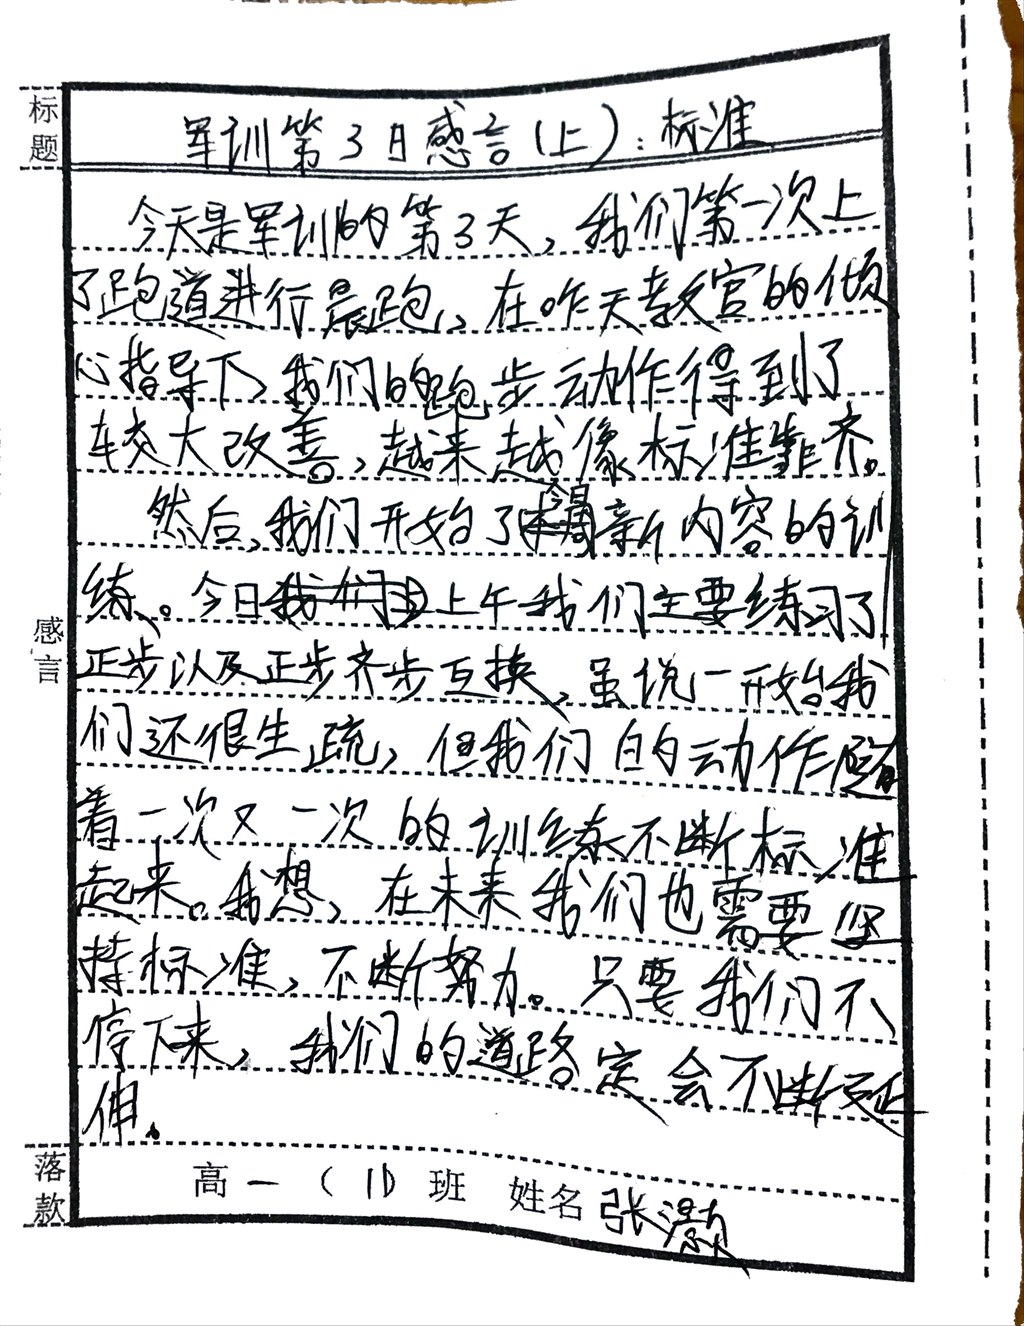 标题
军训第3日感言(上):标准
今天是军训的第3天,我们第一次上
了跑道进行晨跑,在昨天教官的倾
心指导下,我们的跑步动作得到了
较大改善。,越来越像标准靠齐。
然后,我们开始了今日新内容的训
练。今日上午我们主要练习了
正步以及正步齐步互换,虽说一开始我
们还很生疏,但我们的动作随
着一次又一次的训练不断标准
起来。我想,在未来我们也需要坚
持标准,不断努力。只要我们不
停下来,我们的道路定会不断延
伸.
感言
落款
高一(1)班 姓名张灏